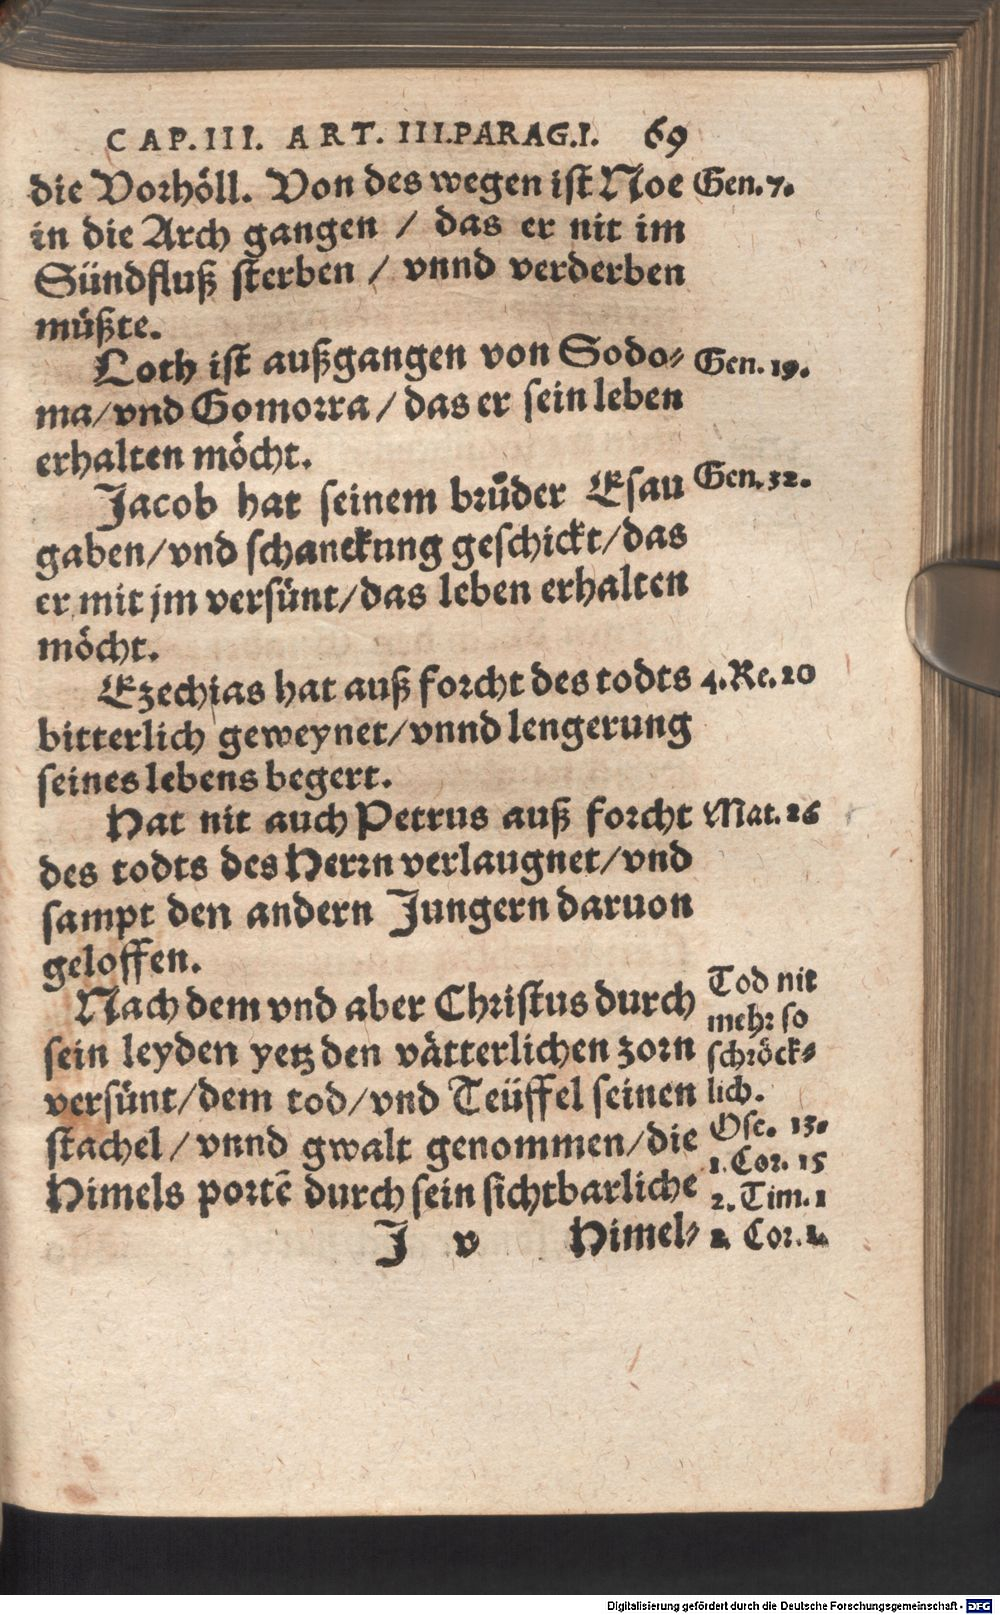 CAP. III. ART. III. PARAG. I. 69
die Vorhöll. Von des wegen ist Noe
Gen. 7.
in die Arch gangen / das er nit im
Sündfluß sterben / vnnd verderben
müßte.
Loth ist außgangen von Sodo-
Gen. 19.
ma / vnd Gomorra / das er sein leben
erhalten möcht.
Jacob hat seinem brůder Esau
Gen. 32.
gaben / vnd schanckung geschickt / das
er mit jm versünt / das leben erhalten
möcht.
Ezechias hat auß forcht des todts
4. Re. 20
bitterlich geweynet / vnnd lengerung
seines lebens begert.
Hat nit auch Petrus auß forcht
Mat. 26
des todts des Herrn verlaugnet / vnd
sampt den andern Jungern daruon
geloffen.
Nach dem vnd aber Christus durch
sein leyden yetz den vätterlichen zorn
versünt / dem tod / vnd Teüffel seinen
stachel / vnnd gwalt genommen / die
Himels portē durch sein sichtbarliche
Tod nit
mehr so
schröck-
lich.
Ose. 13.
1. Cor. 15
2. Tim. 1
Cor.
J v Himel-
Digitalisierung gefördert durch die Deutsche Forschungsgemeinschaft - DFG